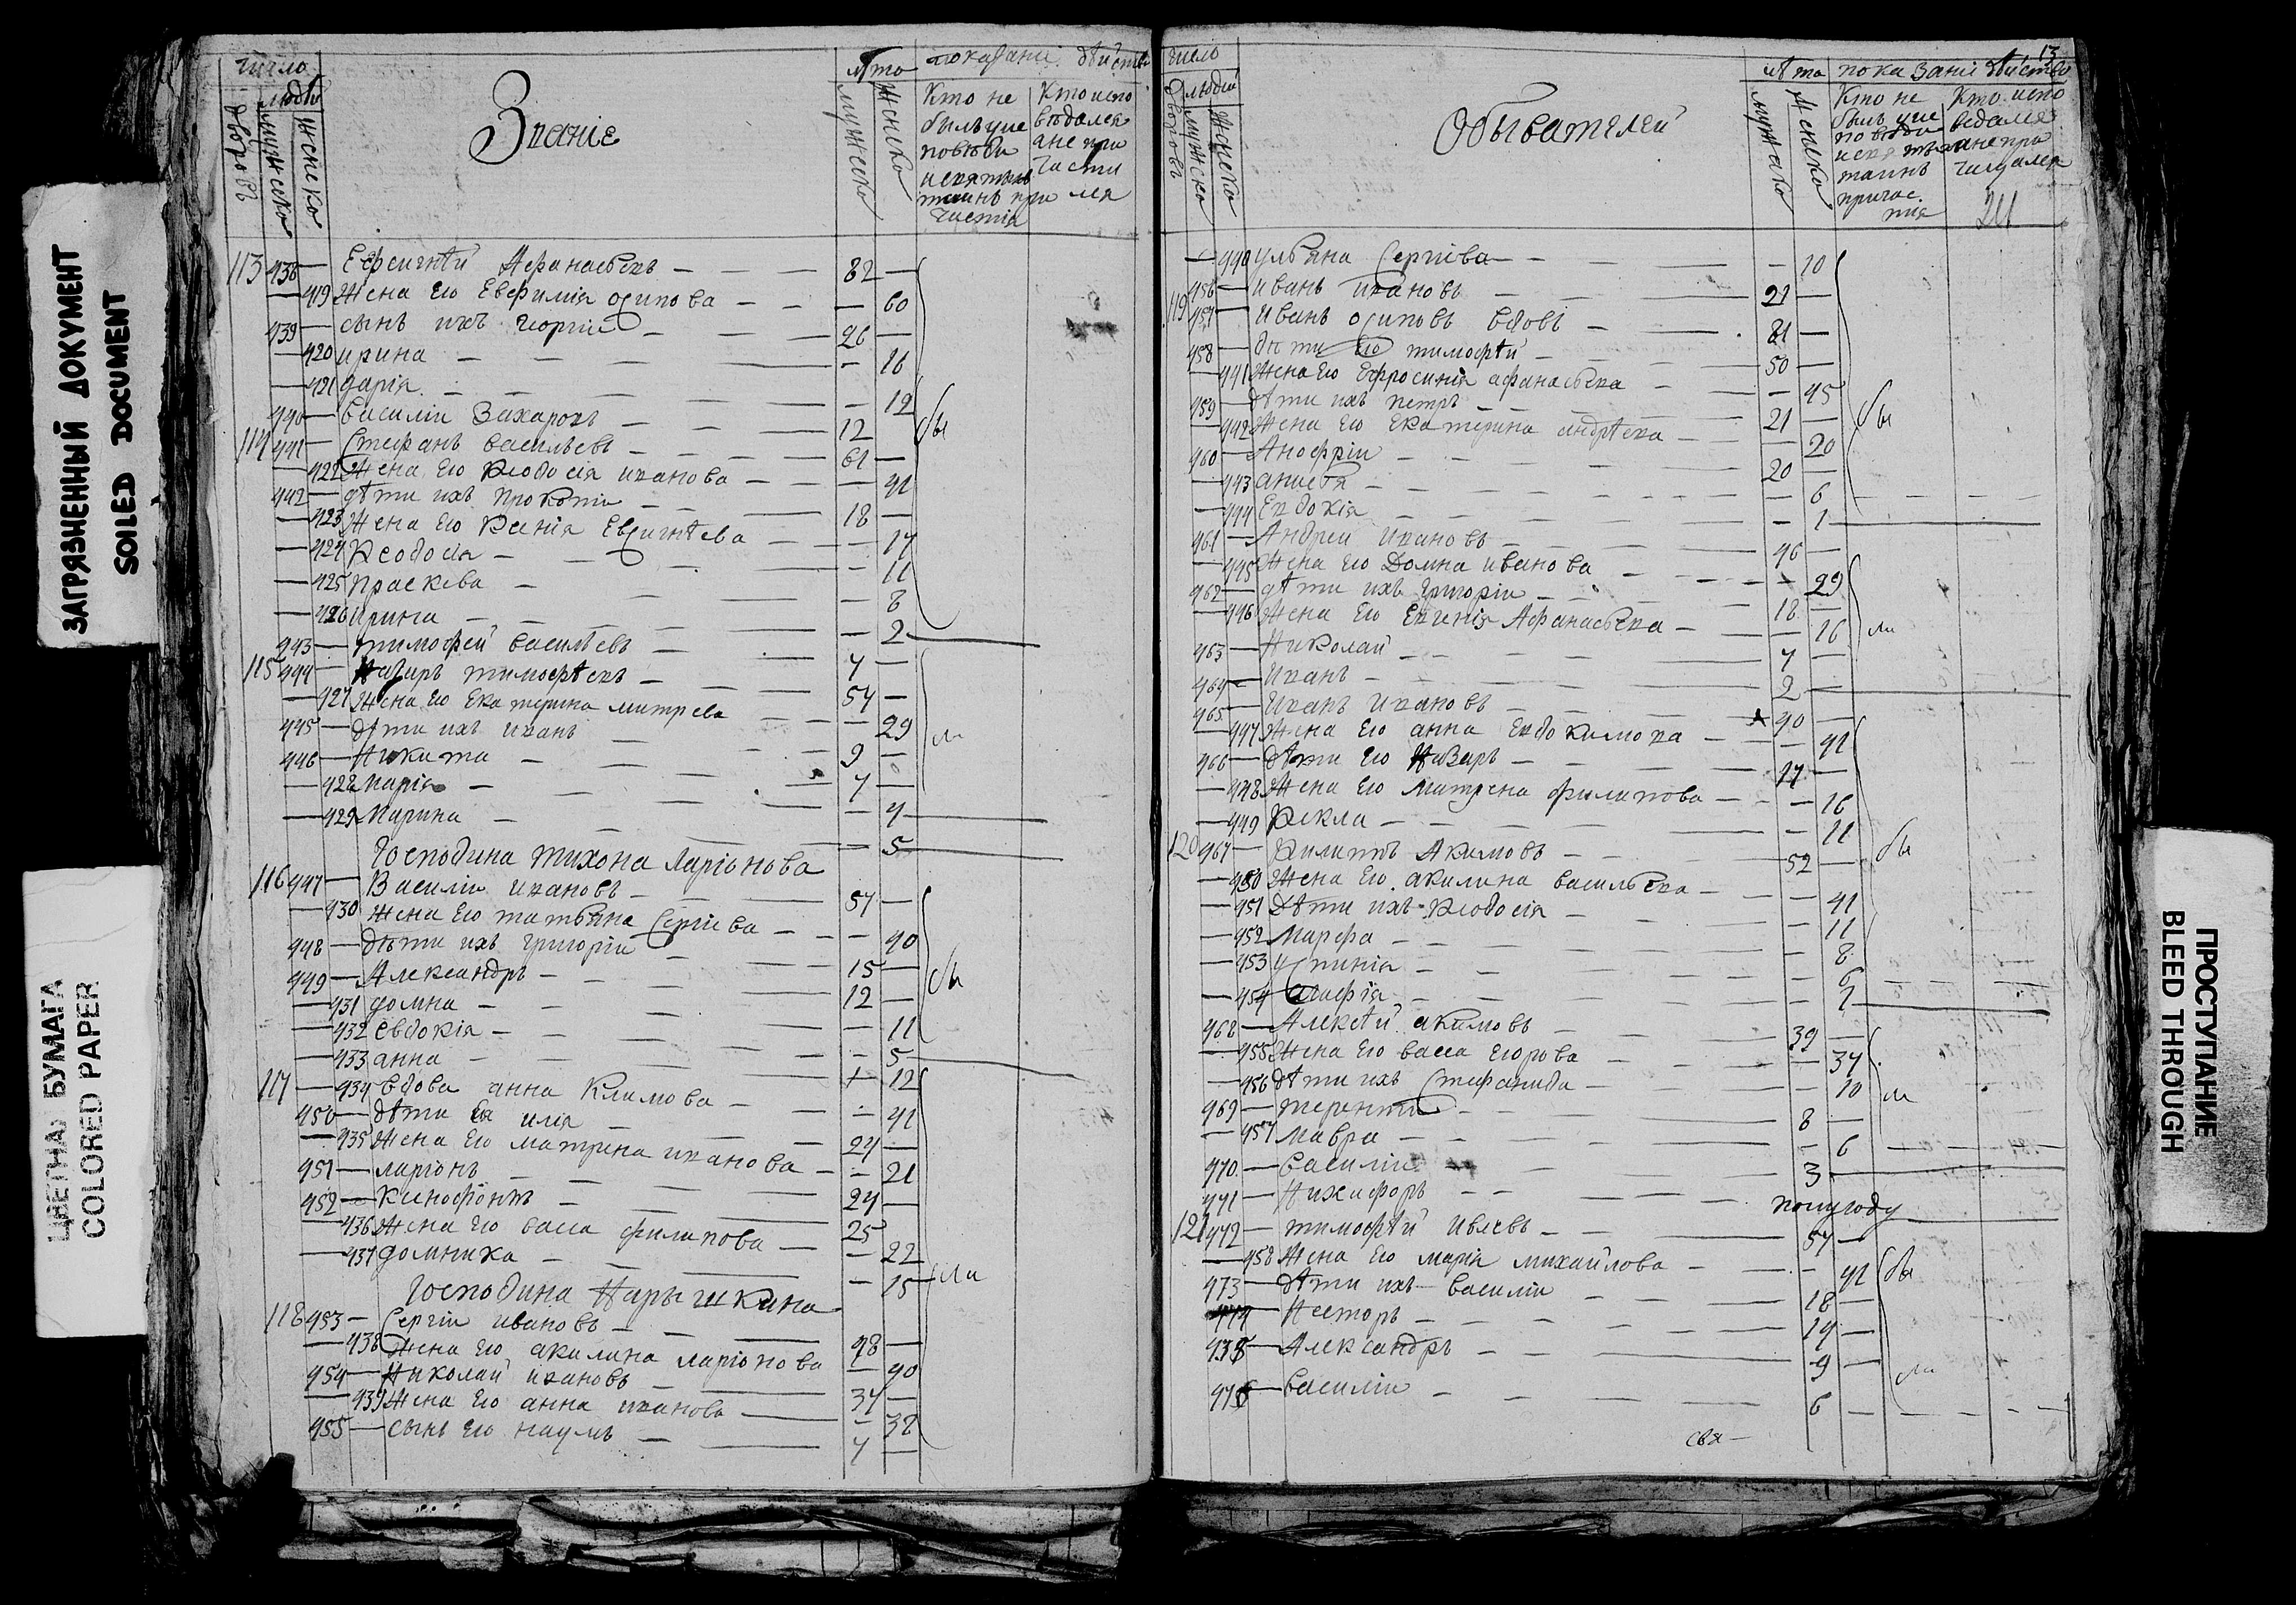 ЗАГРЯЗНЕННЫЙ ДОКУМЕНТ
SOILED DOCUMENT
ЦВЕТНАЯ БУМАГА
COLORED PAPER
число
людей
дворовъ
мужеска
женско
Званіе
лѣта
мужеска
женско
показаніе дѣйства
Кто не
былъ у ис
повѣди
и святыхъ
таинъ при
частія
Кто испо
ведался
а не при
части
лся
113 438 — Евсигнѣй Афанасьевъ — 82 —
— 419 Жена Его Евфимія осипова — — 60
439 — сынъ ихъ Георгій — 26 —
— 420 ирина — — 16
— 421 дарія — — 12
440 — Василіи Захаровъ — 12
114 441 — Стефанъ васильевъ — 61 —
— 422 Жена Его Феодосія иванова — — 41
442 — дѣти ихъ Прокопіи — 18 —
— 423 Жена Его Ксенія Евсигнѣева — — 17
— 424 Феодосія — — 11
— 425 Праскева — — 8
— 426 Ирина — — 2
443 — тимофей василѣевъ — 7 —
115 444 — Назаръ тимофѣевъ — 54 —
— 427 Жена Его Екатерина митрева — — 29
445 — дѣти ихъ иванъ — 9 —
446 — Никита — 7 —
— 428 Марія — — 4
— 429 Марина — — 5
Господина Тихона Ларіонова
116 447 — Василіи ивановъ — 57 —
— 430 жена Его татьяна Сергіева — — 40
448 — дѣти ихъ григоріи — 15 —
449 — Александръ — 12 —
— 431 домна — — 11
— 432 Евдокія — — 5
— 433 анна — — 12
117 — 434 вдова анна Климова — — 41
450 — дѣти Ея илія — 24 —
— 435 Жена Его матрина иванова — — 21
451 — ларіонъ — 24 —
452 — Ксенофонтъ — 25
— 436 Жена Его васса филипова — — 22
— 437 домника — — 15
Господина Нарышкина
118 453 — Сергіи ивановъ — 48 —
— 438 Жена Его акилина ларіонова — — 40
454 — Николаи ивановъ — 37 —
— 439 Жена Его анна иванова — — 38
455 — сынъ Его наумъ — 7 —
бы
ли
бы
ли
13
число
людей
дворовъ
мужеска
женска
Обывателей
лѣта
мужеска
женско
показаніе дѣйство
Кто не
былъ у ис
повѣди
и святыхъ
таинъ
причас
тія
Кто испо
ведался
а не при
чащался
— 440 ульяна Сергіева — — 10
456 — иванъ ивановъ — 21 —
119 457 — Иванъ осиповъ вдовъ — 81 —
458 — дѣти Его тимофѣй — 50 —
— 441 Жена Его Ефросинія афанасьева — — 45
459 — дѣти ихъ петръ — 21 —
— 442 Жена Его Екатерина андрѣева — — 20
460 — Анофріи — 20 —
— 443 анисья — — 6
— 444 Евдокія — — 1
461 — Андреи ивановъ — 46 —
— 445 Жена Его Домна иванова — — 29
462 — дѣти ихъ Григоріи — 18 —
— 446 Жена Его Евгенія Афанасьева — — 16
463 — Николаи — 7 —
464 — Иванъ — 2 —
465 — Иванъ Ивановъ — 40 —
— 447 Жена Его анна Евдокимова — — 41
466 — дѣти Его Назаръ — 17 —
— 448 Жена Его Матрена филипова — — 16
— 449 Фекла — — 11
120 467 — Филипъ Акимовъ — 52 —
— 450 Жена Его акилина васильева — — 41
— 451 Дѣти ихъ Феодосія — — 11
— 452 Марфа — — 8
— 453 Устинія — — 6
— 454 агафія —
468 — Алексѣй акимовъ — 39 —
— 455 Жена Его васса Егорова — — 37
— 456 дѣти ихъ Стефанида — — 10
469 — терентіи — 8 —
— 457 мавра — — 6
470 — Василіи — 3
471 — Никифоръ — полугоду
121 472 — тимофѣй Ивлевъ — 57 —
— 458 Жена Его марія михайлова — — 41
473 — дѣти ихъ василіи — 18 —
474 — Несторъ — 14 —
475 — Александръ — 9 —
476 — василіи — 6 —
бы
ли
бы
ли
бы
ли
свя—
ПРОСТУПАНИЕ
BLEED THROUGH